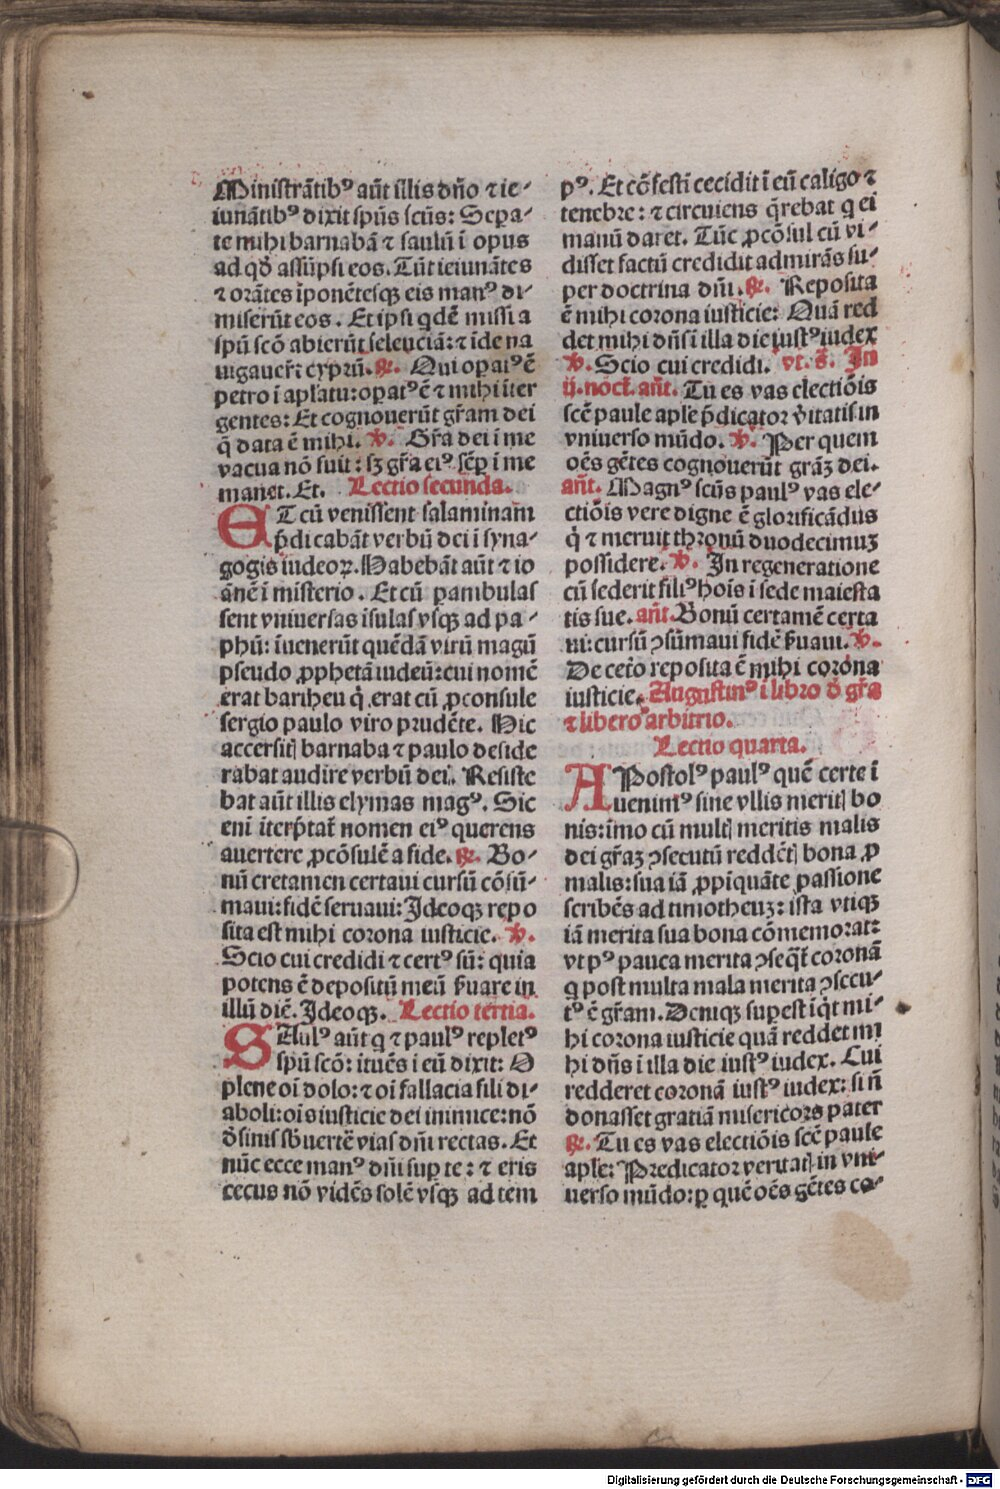 Ministrãtibꝰ aũt illis dño ⁊ ie-
iunãtibꝰ dixit spũs scũs: Sepa-
te mihi barnabã ⁊ saulũ ĩ opus
ad qđ assũpsi eos. Tũt ieiunãtes
⁊ orãtes ĩponẽtesqꝫ eis manꝰ di-
miserũt eos. Et ipsi qdẽ missi a
spũ scõ abierũt seleuciã: ⁊ ĩde na
uigauer̃t cyprũ. ℟. Qui oꝑatꝰ ẽ
petro ĩ aplatu: oꝑatꝰ ẽ ⁊ mihi ĩter
gentes: Et cognouerũt gr̃am dei
q̃ data ẽ mihi. ℣. Gr̃a dei ĩ me
vacua nõ fuit: sꝫ gr̃a eiꝰ sẽꝑ ĩ me
manet. Et. Lectio secunda.
ET cũ venissent salaminam̃
p̃dicabãt verbũ dei ĩ syna-
gogis iudeoꝝ. Habebãt aũt ⁊ io
ãnẽ ĩ misterio. Et cũ ꝑambulas
sent vniuersas ĩsulas vsqꝫ ad pa-
phũ: ĩuenerũt quẽdã virũ magũ
pseudo ꝓphetã iudeũ: cui nomẽ
erat bariheu q̃ erat cũ ꝓconsule
sergio paulo viro prudẽte. Hic
accersitꝭ barnaba ⁊ paulo deside
rabat audire verbũ dei. Resiste
bat aũt illis elymas magꝰ. Sic
eni ĩterp̃tat̃ nomen eiꝰ querens
auertere ꝓcõsulẽ a fide. ℟. Bo-
nũ cretamen certaui cursũ cõsũ-
maui: fidẽ seruaui: Ideoqꝫ repo
sita est mihi corona iusticie. ℣.
Scio cui credidi ⁊ certꝰ sũ: quia
potens ẽ depositũ meũ ẜuare in
illũ diẽ. Ideoqꝫ. Lectio tertia.
SAulꝰ aũt q ⁊ paulꝰ repletꝰ
spũ scõ: ĩtuẽs ĩ eũ dixit: O
plene oĩ dolo: ⁊ oĩ fallacia fili di-
aboli: oĩs iusticie dei inimice: nõ
đsinis sb̃uertẽ vias dñi rectas. Et
nũc ecce manꝰ dñi suꝑ te: ⁊ eris
cecus nõ vidẽs solẽ vsqꝫ ad tem
pꝰ. Et cõfesti cecidit ĩ eũ caligo ⁊
tenebre: ⁊ circuiens q̃rebat q ei
manũ daret. Tũc ꝓcõsul cũ vi-
disset factũ credidit admirãs su-
per doctrina dñi. ℟. Reposita
ẽ mihi corona iusticie: Quã red
det mihi dñs ĩ illa die iustꝰ iudex
℣. Scio cui credidi. vt. s̃. In
ij. noct̃. añt. Tu es vas electiõis
scẽ paule aple p̃dicator v̉itatis in
vniuerso mũdo. ℣. Per quem
oẽs gẽtes cognouerũt grãꝫ dei.
añt. Magnꝰ scũs paulꝰ vas ele-
ctiõis vere digne ẽ glorificãdus
q̃ ⁊ meruit thronũ duodecimuꝫ
possidere. ℣. In regeneratione
cũ sederit filiꝰ hoĩs ĩ sede maiesta
tis sue. añt. Bonũ certamẽ certa
ui: cursũ ↄsũmaui fidẽ ẜuaui. ℣.
De cet̉o reposita ẽ mihi corona
iusticie. Augustinꝰ ĩ libro đ gr̃a
⁊ libero arbitrio.
Lectio quarta.
APostolꝰ paulꝰ quẽ certe ĩ
uenimꝰ sine vllis meritꝭ bo
nis: ĩmo cũ multꝭ meritis malis
dei gr̃aꝫ ↄsecutũ reddẽtꝭ bona ꝓ
malis: sua iã ꝓpĩquãte passione
scribẽs ad timotheuꝫ: ista vtiqꝫ
iã merita sua bona cõmemorat:
vt pꝰ pauca merita ↄseq̃t̃ coronã
q post multa mala merita ↄsecu-
tꝰ ẽ gr̃am. Deniqꝫ suꝑest ĩq̃t mi-
hi corona iusticie quã reddet mi
hi dñs ĩ illa die iustꝰ iudex. Cui
redderet coronã iustꝰ iudex: si ñ
donasset gratiã misericors pater
℟. Tu es vas electiõis scẽ paule
aple: Predicator veritatꝭ in vni-
uerso mũdo: ꝑ quẽ oẽs gẽtes co-
Digitalisierung gefördert durch die Deutsche Forschungsgemeinschaft - DFG